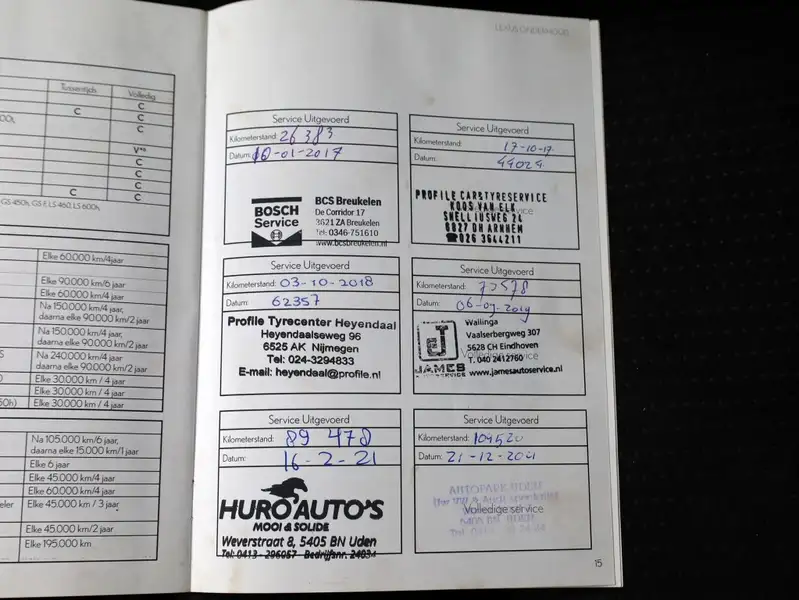 Tussentijds Volledig
C
C C
C
V**
C
C
C
C C
GS 450h, GS F, LS 460, LS 600h,
Elke 60.000 km/4 jaar
Elke 90.000 km/6 jaar
Elke 60.000 km/4 jaar
Na 150.000 km/4 jaar,
daarna elke 90.000 km/2 jaar
Na 150.000 km/4 jaar,
daarna elke 90.000 km/2 jaar
Na 240.000 km/4 jaar
daarna elke 90.000 km/2 jaar
Elke 30.000 km / 4 jaar
Elke 30.000 km / 4 jaar
Elke 30.000 km / 4 jaar
Na 105.000 km/6 jaar,
daarna elke 15.000 km/1 jaar
Elke 6 jaar
Elke 45.000 km/4 jaar
Elke 60.000 km/4 jaar
Elke 45.000 km / 3 jaar
Elke 45.000 km/2 jaar
Elke 195.000 km
LEXUS ONDERHOUD
Service Uitgevoerd
Kilometerstand: 26383
Datum: 10-01-2017
BOSCH
Service
BCS Breukelen
De Corridor 17
3621 ZA Breukelen
Tel: 0346-751610
www.bcsbreukelen.nl
Service Uitgevoerd
Kilometerstand: 17-10-17
Datum: 44024
PROFILE CAR&TYRESERVICE
KOOS VAN ELK
SNELLIUSWEG 24
6827 DH ARNHEM
☎026 3644211
Service Uitgevoerd
Kilometerstand: 03-10-2018
Datum: 62357
Profile Tyrecenter Heyendaal
Heyendaalseweg 96
6525 AK Nijmegen
Tel: 024-3294833
E-mail: heyendaal@profile.nl
Service Uitgevoerd
Kilometerstand: 73578
Datum: 06-07-2019
JAMES
Wallinga
Vaalserbergweg 307
5628 CH Eindhoven
Volledige service
T. 040 2412760
www.jamesautoservice.nl
Service Uitgevoerd
Kilometerstand: 89 478
Datum: 16-2-21
HURO AUTO'S
MOOI & SOLIDE
Weverstraat 8, 5405 BN Uden
Tel: 0413 - 296067 - Bedrijfsnr. 24034
Service Uitgevoerd
Kilometerstand: 104520
Datum: 21-12-2021
AUTOPARK UDEN
Volledige service
15